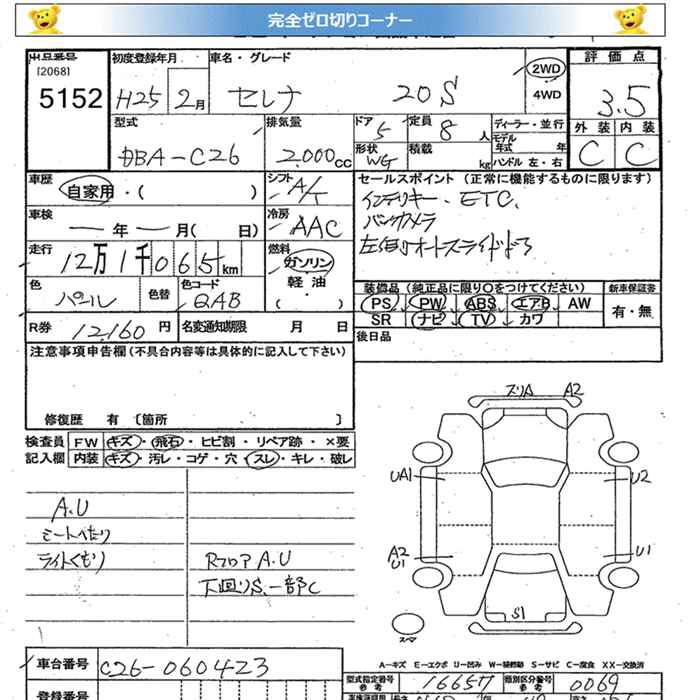 完全ゼロ切りコーナー
出品番号 初度登録年月 車名・グレード 評価点
[2068]
5152 H25 2月 セレナ 20S 2WD 4WD 3.5
外装 内装
C C
型式 排気量 ドア 定員 ディーラー・並行
DBA-C26 2,000cc 5 8人 モデル年式 年
形状 積載 kg ハンドル 左・右
WG
車歴 自家用・( ) シフト A/T
セールスポイント(正常に機能するものに限ります)
インテリキー・ETC、
バックカメラ
左側オートスライドドア
車検 ー年ー月( 日) 冷房 AAC
走行 12万1千065km 燃料 ガソリン
軽油
・( )
色 パール 色替 色コード QAB
装備品(純正品に限り○をつけてください) 新車保証書
PS PW ABS エアB AW 有・無
SR ナビ TV カワ
R券 12160円 名変通知期限 月 日
後日品
注意事項申告欄(不具合内容等は具体的に記入して下さい)
修復歴 有 〔箇所 〕
検査員 FW キズ・飛石・ヒビ割・リペア跡・×要
記入欄 内装 キズ・汚レ・コゲ・穴・スレ・キレ・破レ
A.U
シートへたり
ライトくもり
RフロアA.U
下回りS、一部C
スリA A2
UA1 U2
A2 U1
U1
S1
スマ
A-キズ E-エクボ U-凹み W-補修跡 S-サビ C-腐食 XX-交換済
車台番号 C26-060423
型式指定番号 参考 16657 類別区分番号 参考 0069
登録番号